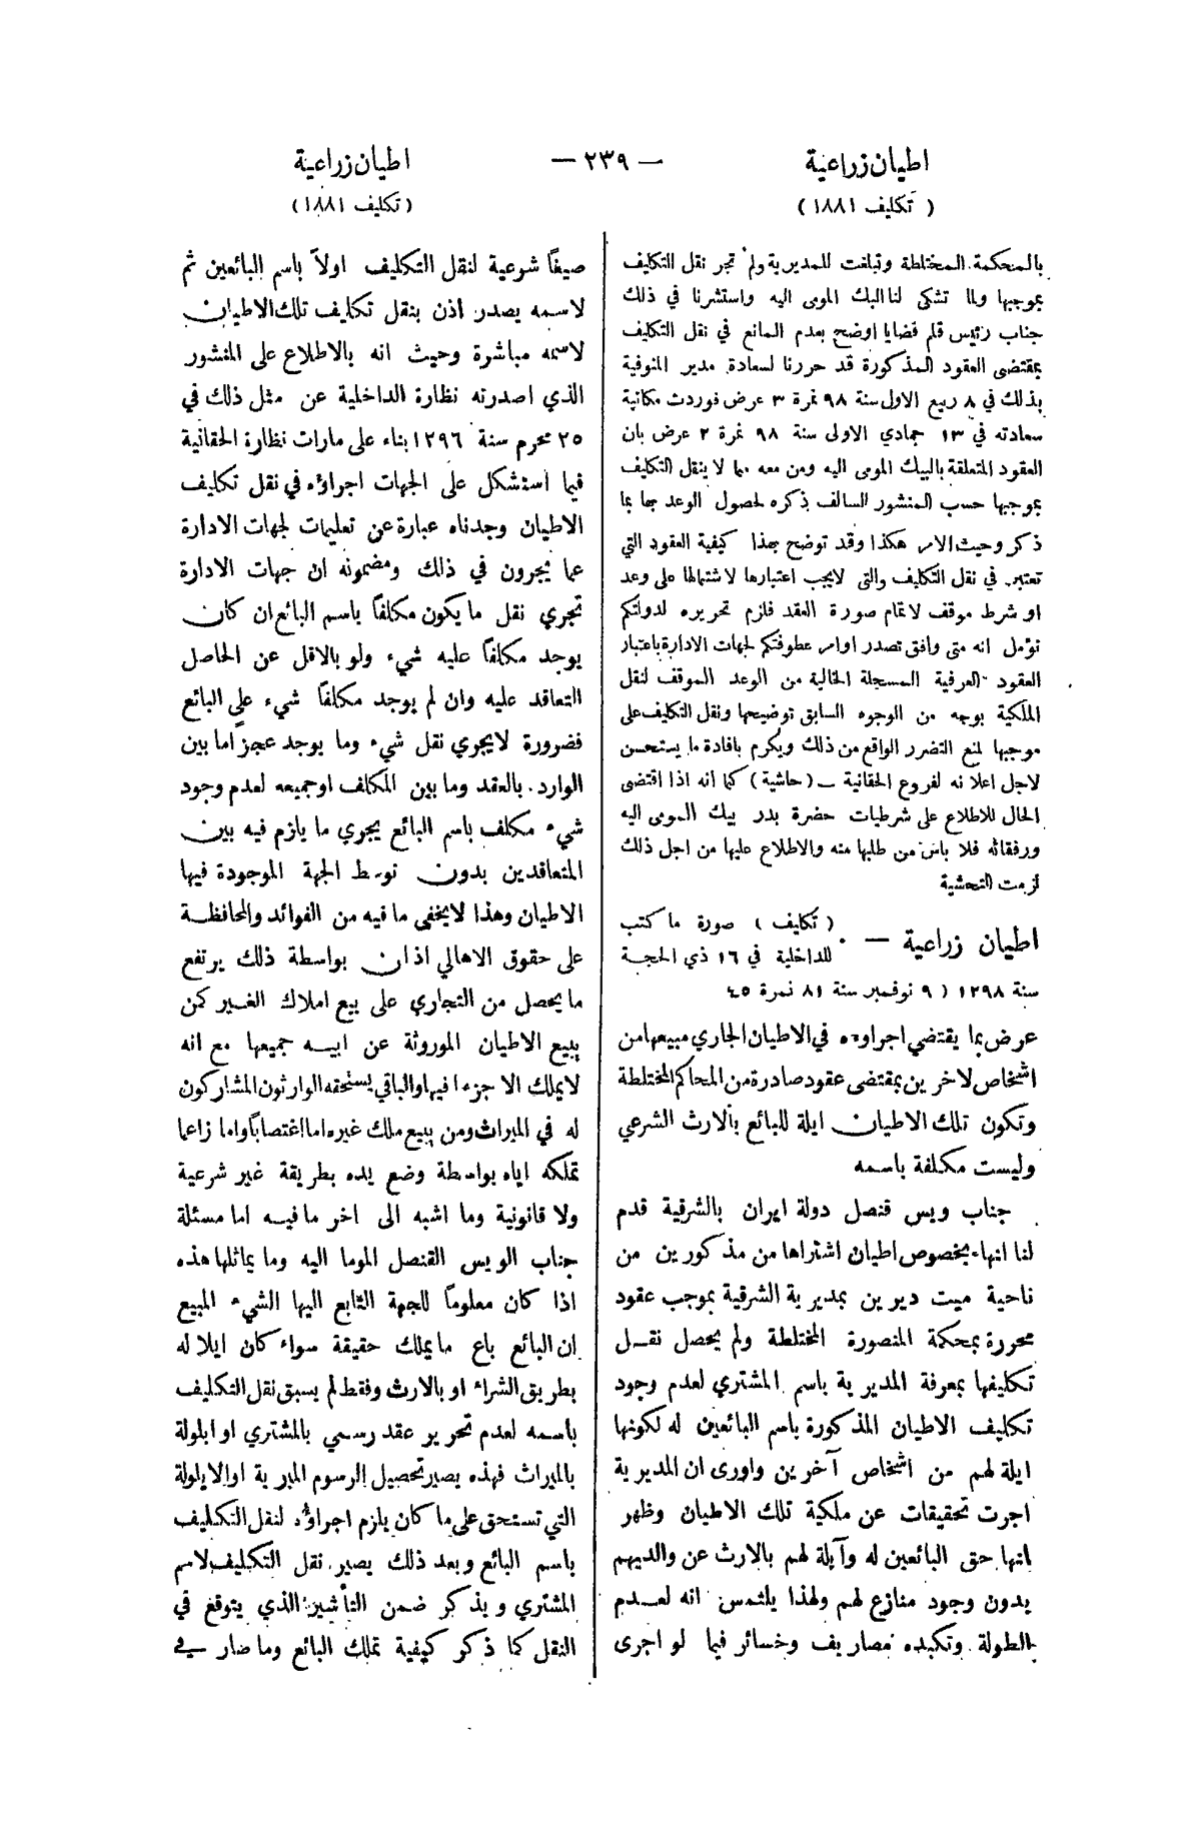 اطيان زراعية
— ٢٣٩ —
اطيان زراعية
( تكليف ١٨٨١ )
( تكليف ١٨٨١ )
بالمحكمة المختلطة وتبلغت للمديرية ولم تجر نقل التكليف
بموجبها ولما تشكى لنا البك المومى اليه واستشرنا في ذلك
جناب رئيس قلم قضايا اوضح بعدم المانع في نقل التكليف
بمقتضى العقود المذكورة قد حررنا لسعادة مدير المنوفية
بذلك في ٨ ربيع الاول سنة ٩٨ نمرة ٣ عرض فوردت مكاتبة
سعادته في ١٣ جمادي الاولى سنة ٩٨ نمرة ٢ عرض بان
العقود المتعلقة بالبيك المومى اليه ومن معه مما لا ينقل التكليف
بموجبها حسب المنشور السالف ذكره لحصول الوعد بها بما
ذكر وحيث الامر هكذا وقد توضح بهذا كيفية العقود التي
تعتبر في نقل التكليف والتى لايجب اعتبارها لاشتمالها على وعد
او شرط موقف لاتمام صورة العقد فلزم تحريره لدولتكم
نؤمل انه متى وافق تصدر اوامر عطوفتكم لجهات الادارة باعتبار
العقود العرفية المسجلة الخالية من الوعد الموقف لنقل
الملكية بوجه من الوجوه السابق توضيحها ونقل التكليف على
موجبها لمنع التضرر الواقع من ذلك ويكرم بافادة ما يستحسن
لاجل اعلانه لفروع الحقانية — ( حاشية ) كما انه اذا اقتضى
الحال للاطلاع على شرطيات حضرة بدر بيك المومى اليه
ورفقائه فلا باس من طلبها منه والاطلاع عليها من اجل ذلك
لزمت التحشية
اطيان زراعية — ( تكليف ) صورة ما كتب
للداخلية في ١٦ ذي الحجة
سنة ١٢٩٨ ( ٩ نوفمبر سنة ٨١ نمرة ٤٥
عرض بما يقتضي اجراوه في الاطيان الجاري مبيعها من
اشخاص لاخرين بمقتضى عقود صادرة من المحاكم المختلطة
وتكون تلك الاطيان ايلة للبائع بالارث الشرعي
وليست مكلفة باسمه
جناب ويس قنصل دولة ايران بالشرقية قدم
لنا انهاء بخصوص اطيان اشتراها من مذكورين من
ناحية ميت ديرين بمديرية الشرقية بموجب عقود
محررة بمحكمة المنصورة المختلطة ولم يحصل نقل
تكليفها بمعرفة المديرية باسم المشتري لعدم وجود
تكليف الاطيان المذكورة باسم البائعين له لكونها
ايلة لهم من اشخاص آخرين واورى ان المديرية
اجرت تحقيقات عن ملكية تلك الاطيان وظهر
انها حق البائعين له وآيلة لهم بالارث عن والديهم
بدون وجود منازع لهم ولهذا يلتمس انه لعدم
الطولة وتكبده مصاريف وخسائر فيما لو اجرى
صيغاً شرعية لنقل التكليف اولاً باسم البائعين ثم
لاسمه يصدر اذن بنقل تكليف تلك الاطيان
لاسمه مباشرة وحيث انه بالاطلاع على المنشور
الذي اصدرته نظارة الداخلية عن مثل ذلك في
٢٥ محرم سنة ١٢٩٦ بناء على مارات نظارة الحقانية
فيما استشكل على الجهات اجراؤه في نقل تكليف
الاطيان وجدناه عبارة عن تعليمات لجهات الادارة
عما يجرون في ذلك ومضمونه ان جهات الادارة
تجري نقل ما يكون مكلفاً باسم البائع ان كان
يوجد مكلفاً عليه شيء ولو بالاقل عن الحاصل
التعاقد عليه وان لم يوجد مكلفاً شيء على البائع
فضرورة لايجري نقل شيء وما يوجد عجزاً ما بين
الوارد بالعقد وما بين المكلف او جميعه لعدم وجود
شيء مكلف باسم البائع يجوي ما يلزم فيه بين
المتعاقدين بدون توسط الجهة الموجودة فيها
الاطيان وهذا لايخفى ما فيه من الفوائد والمحافظة
على حقوق الاهالي اذ ان بواسطة ذلك يرتفع
ما يحصل من التجاري على بيع املاك الغير كمن
يبيع الاطيان الموروثة عن ابيه جميعها مع انه
لايملك الا جزءا فيها والباقي يستحقه الوارثون المشاركون
له في الميراث ومن يبيع ملك غيره اما اغتصاباً واما زاعما
تملكه اياه بواسطة وضع يده بطريقة غير شرعية
ولا قانونية وما اشبه الى اخر ما فيه اما مسئلة
جناب الويس القنصل الموما اليه وما يماثلها هذه
اذا كان معلوماً للجهة التابع اليها الشيء المبيع
ان البائع باع ما يملك حقيقة سواء كان ايلا له
بطريق الشراء او بالارث وفقط لم يسبق نقل التكليف
باسمه لعدم تحرير عقد رسمي بالمشتري او ايلولة
بالميراث فهذه يصير تحصيل الرسوم الميرية او الايلولة
التي تستحق على ما كان يلزم اجراؤه لنقل التكليف
باسم البائع وبعد ذلك يصير نقل التكليف لاسم
المشتري و يذكر ضمن التأشير الذي يتوقع في
النقل كما ذكر كيفية تملك البائع وما صار في